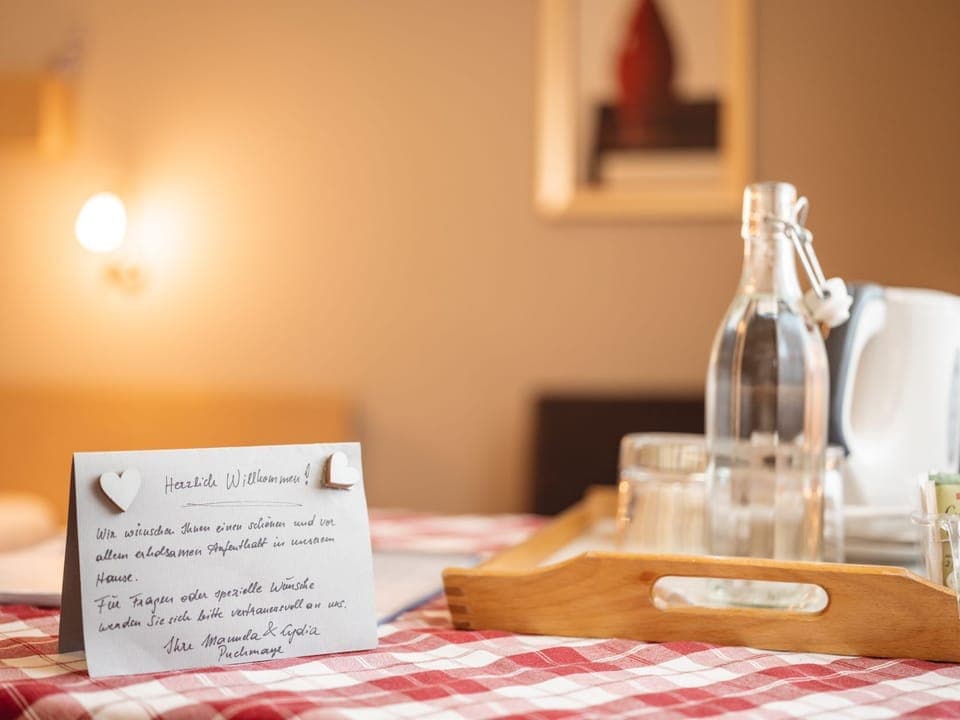 Herzlich Willkommen!
Wir wünschen Ihnen einen schönen und vor
allem erholsamen Aufenthalt in unserem
Hause.
Für Fragen oder spezielle Wünsche
wenden Sie sich bitte vertrauensvoll an uns.
Ihre Manuela & Lydia